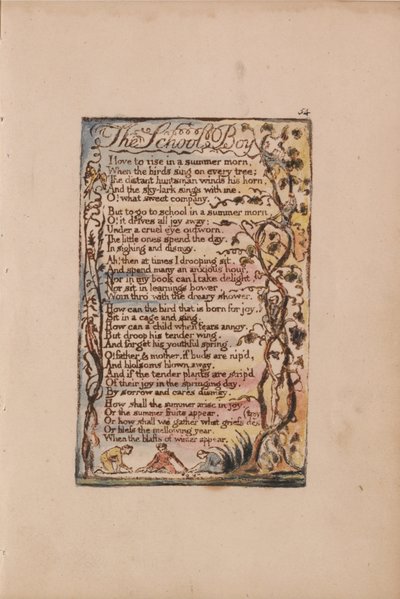 54
The School Boy
I love to rise in a summer morn,
When the birds sing on every tree;
The distant huntsman winds his horn,
And the sky-lark sings with me.
O! what sweet company.
But to go to school in a summer morn
O! it drives all joy away;
Under a cruel eye outworn,
The little ones spend the day,
In sighing and dismay.
Ah! then at times I drooping sit,
And spend many an anxious hour,
Nor in my book can I take delight,
Nor sit in learnings bower,
Worn thro' with the dreary shower.
How can the bird that is born for joy,
Sit in a cage and sing.
How can a child when fears annoy,
But droop his tender wing,
And forget his youthful spring.
O! father & mother, if buds are nip'd,
And blossoms blown away,
And if the tender plants are strip'd
Of their joy in the springing day,
By sorrow and cares dismay,
How shall the summer arise in joy,
Or the summer fruits appear.
Or how shall we gather what griefs des
(troy
Or bless the mellowing year,
When the blasts of winter appear.